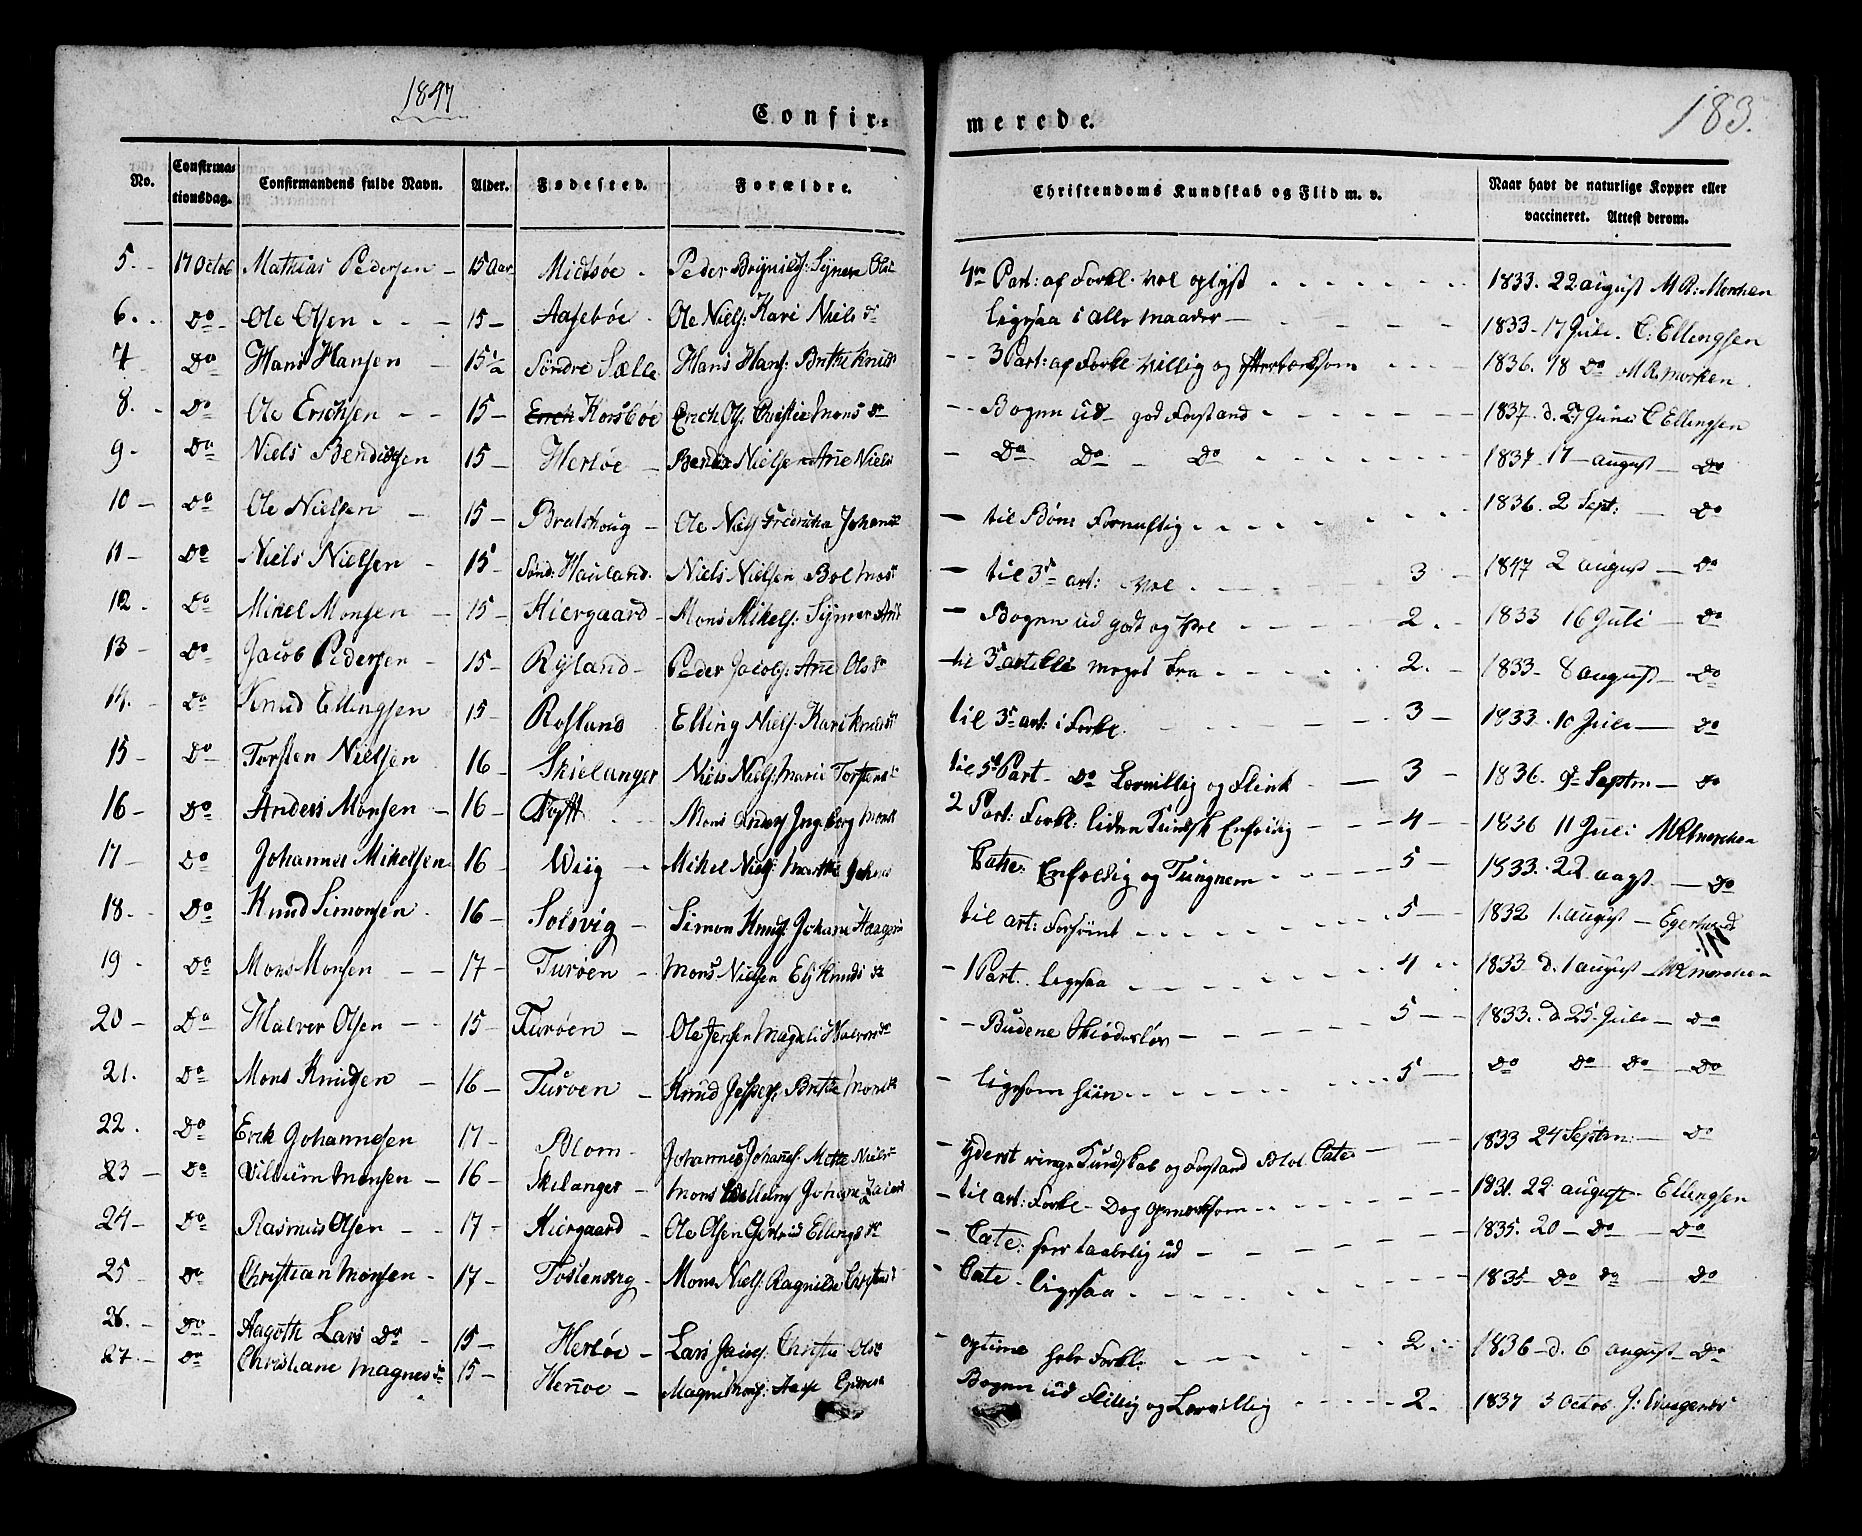 1847
Confir-
merede.
183.
No. Confirma-tionsdag. Confirmandens fulde Navn. Alder. Fødested. Forældre. Christendoms Kundskab og Flid m. v. Naar havt de naturlige Kopper eller vaccineret. Attest derom.
5. 17 Octob Mathias Pedersen 15 Aar Midtsøe Peder Brynilds: Synneve Ols 4re Part: af Forkl. vel oplyst 1833. 22 august
6. Do Ole Olsen 15 Aasebøe Ole Niels: Kari Niels Dr ligesaa i alle maader 1833 17 Juli C: Ellingsen
7 Do Hans Hansen 15½ Søndre Sælle Hans Hans: Brithe Knuds 3 Part: af Forkl villig og 1836. 18 Do
8. Do Ole Erichsen 15 Korsbøe Erich Ols: Christie Mons Dr Bogen ud god Forstand 1837. d. 27 Juni C Ellingsen
9 Do Niels Bendixsen 15 Herløe Nielse Ane Niels Do Do Do 1837 17 august Do
10 Do Ole Nielsen 15 Bratshoug Ole Niels Fredricka Johans til Bøn: Fornuftig 1836 2 Sept: Do
11 Do Niels Nielsen 15 Sønd: Hauland Niels Nielsen til 3die art: vel 3 1847 2 august Do
12. Do Mikel Monsen 15 Hiergaard Mons Mikels: Bogen ud godt og vel 2. 1833 16 Juli Do
13 Do Jacob Pedersen 15 Ryland Peder Jacobs: Ane Ols Dr til 3 artikle meget bra 2. 1833 8 august Do
14. Do Knud Ellingsen 15 Rosland Elling Niels: Kari Knuds til 3 art: i Forkl. 3 1833. 10 Juli Do
15 Do Torsten Nielsen 16 Skielanger Niels Niels: Marie Torstens til 5te Part Do Lærvillig og Flink 3 1836. 9 Septm Do
16 Do Anders Monsen 16 Toft Mons Anders Ingeborg Mons 2 Part: Forkl: liden Kundsk Enfoldig 4 1836 11 Juli
17 Do Johannes Mikelsen 16 Wiig Mikel Niels: Marthe Johans Cate: Enfoldig og Tungnem 5 1833. 22 augst. Do
18. Do Knud Simonsen 16 Solsvig Simon Knuds: Johane til art: Forsømt 5 1832 1. august
19 Do Mons Monsen 17 Turøen Mons Nielsen Eli Knuds Dr 1 Part. ligesaa 4 1833 d. 1 august
20 Do Halver Olsen 15 Turøen Ole Jensen Magdeli Halvors Dr Budene Skiødesløs 5 1833. d 25. Juli Do
21. Do Mons Knudsen 16 Turøen Knud Jespers: Brithe Mons ligesom hiin 5 Do Do Do Do
22. Do Erik Johannesen 17 Blom Johannes Johannes: Mette Niels yderst ringe Kundskab og Forstand Cate 1833 24 Septm: Do
23 Do Vilhelm Monsen 16 Skilanger Mons Johane til art: Forkl Dog opmerksom 1831. 22 august Ellingsen
24 Do Rasmus Olsen 17 Hiergaard Ole Olsen Gjertrud Ellings Dr Cate: forr taabelig ud 1835. 20 Do Do
25 Do Christian Monsen 17 Mons Niels: Ragnilde Cate ligesaa 1835 Do Do Do
26. Do Aagothe Lars Do 15 Herløe Lars Christie Ols optime hele Forkl: 2 1836 d. 6 august Do
27. Do Christiane Magnes Dr 15 Hernøe Magne Mons: Aase Bogen ud Flittig og Lærvillig 2. 1837 3 Octob.